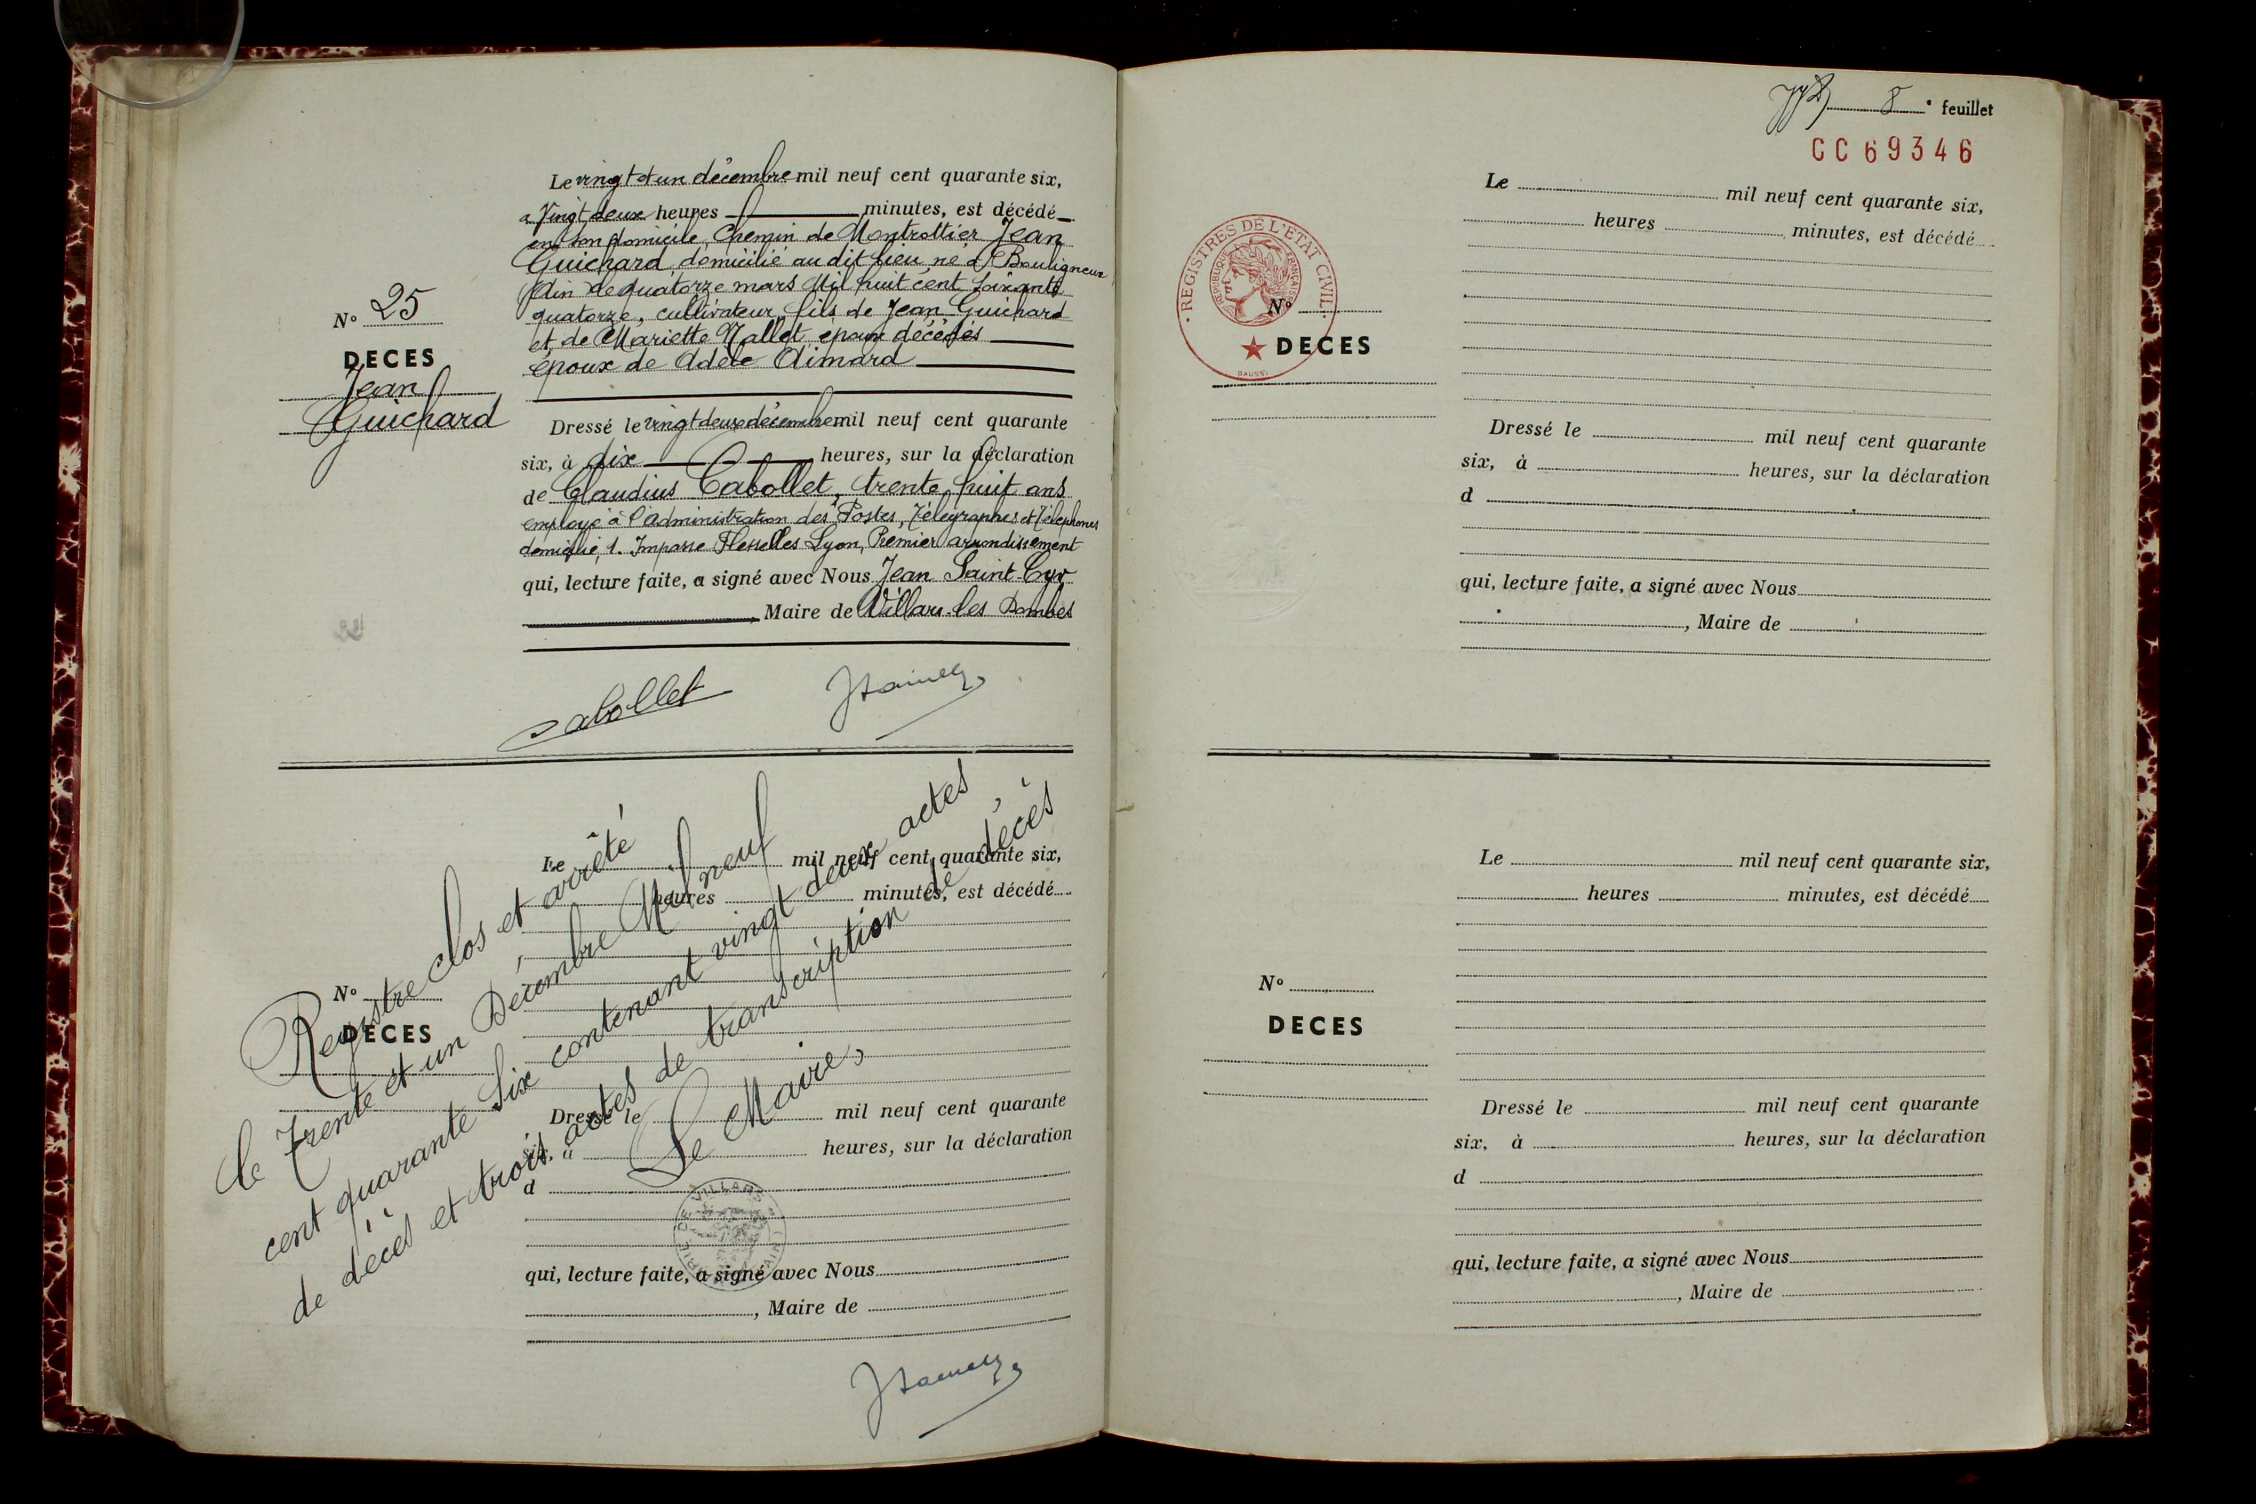 Le vingt et un décembre mil neuf cent quarante six,
a Vingt deux heures minutes, est décédé
en son domicile, Chemin de Montrottier Jean
Guichard domicilié au dit lieu, né à Bouligneux
Ain le quatorze mars Mil huit cent soixante
quatorze, cultivateur, fils de Jean Guichard
et de Mariette Mallet époux décédés
époux de Adèle Aimard
N° 25
DECES
Jean
Guichard
Dressé le vingt deux décembre mil neuf cent quarante
six, à dix heures, sur la déclaration
de Claudius Cabollet, trente huit ans
employé à l'administration des Postes, Télégraphes et Téléphones
domicilié, 1. Impasse Flesselles Lyon, Premier arrondissement
qui, lecture faite, a signé avec Nous Jean Saint-Cyr
, Maire de Villars-les Dombes
Cabollet
Registre clos et arrêté
le Trente et un Décembre Mil neuf
cent quarante Six contenant vingt deux actes
de décès et trois actes de transcription de décès
Le Maire,
Le mil neuf cent quarante six,
heures minutes, est décédé
N°
DECES
Dressé le mil neuf cent quarante
six, à heures, sur la déclaration
d
qui, lecture faite, a signé avec Nous
, Maire de
8e feuillet
CC 69346
Le mil neuf cent quarante six,
heures minutes, est décédé
REGISTRES DE L'ÉTAT CIVIL
RÉPUBLIQUE FRANÇAISE
N°
DECES
Dressé le mil neuf cent quarante
six, à heures, sur la déclaration
d
qui, lecture faite, a signé avec Nous
, Maire de
Le mil neuf cent quarante six,
heures minutes, est décédé
N°
DECES
Dressé le mil neuf cent quarante
six, à heures, sur la déclaration
d
qui, lecture faite, a signé avec Nous
, Maire de